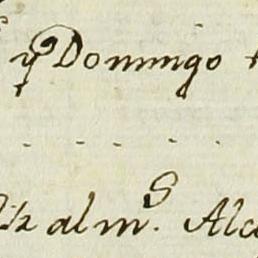 y Domingo
alm.s Alc